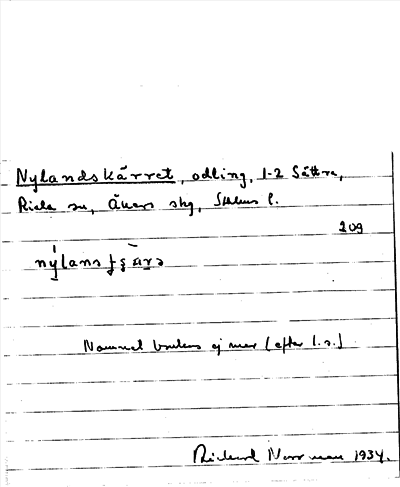 Nylandskärret, odling, 1-2 Sättra,
Riala sn, Åkers skg, Sthlms l.
209
nýlans
Namnet brukas ej mer (efter l.s.)
Rickard Norrman 1934.